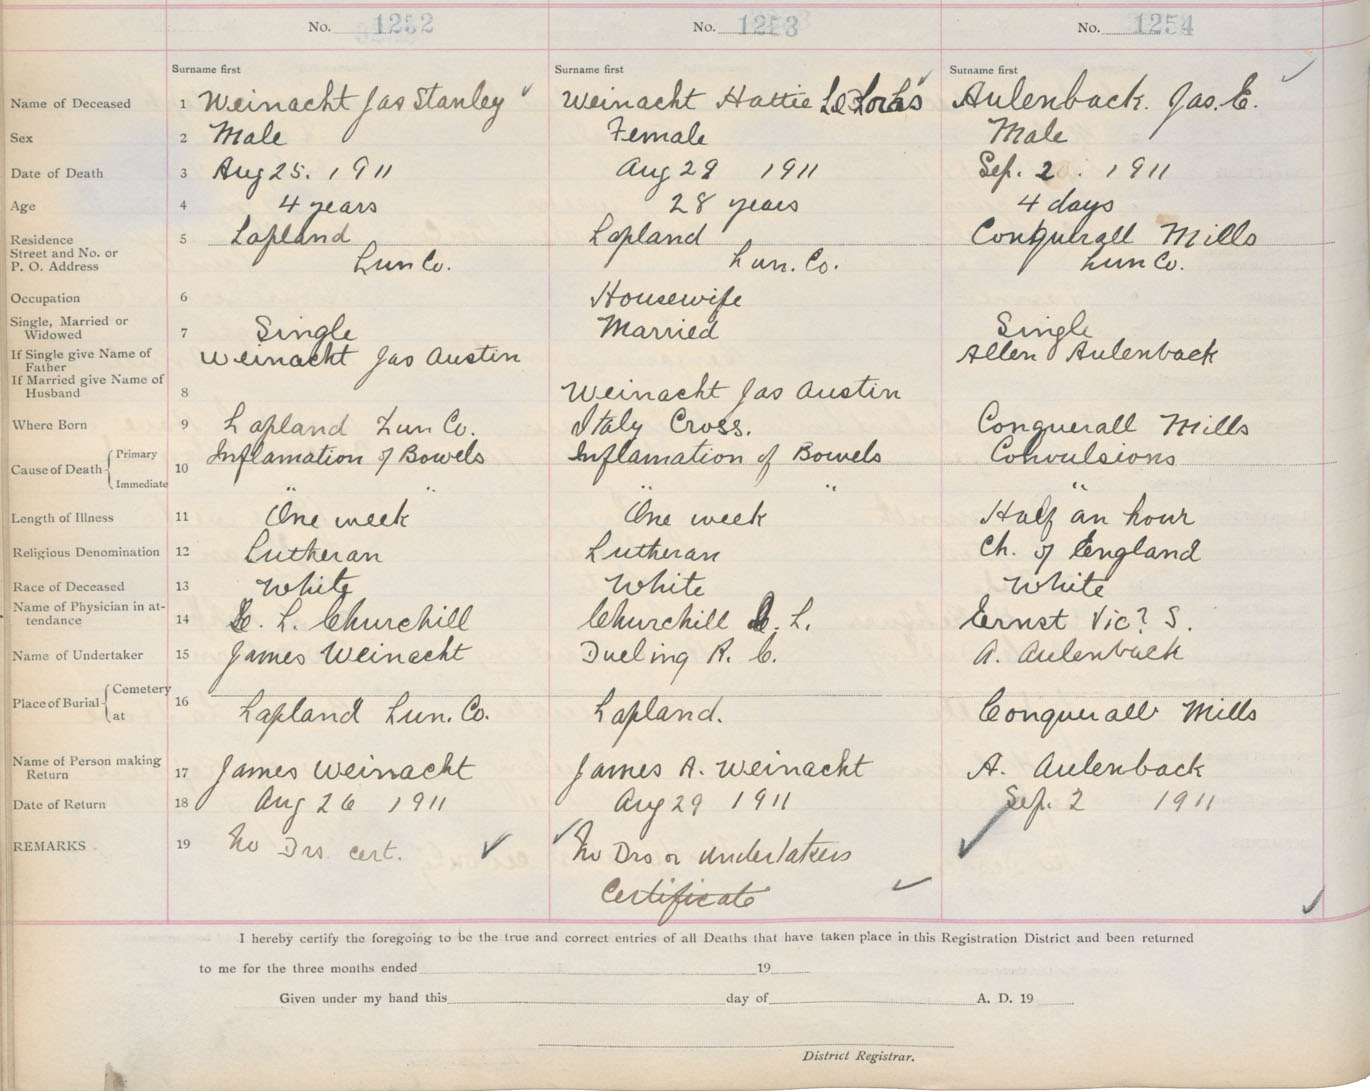 No. 1252 No. 1253 No. 1254
Surname first Surname first Surname first
Name of Deceased 1 Weinacht Jas Stanley Weinacht Hattie Aulenback. Jas. E.
Sex 2 Male Female Male
Date of Death 3 Aug 25. 1911 Aug 29 1911 Sep. 2. 1911
Age 4 4 years 28 years 4 days
Residence 5 Lapland Lapland Conquerall Mills
Street and No. or
P. O. Address Lun Co. Lun. Co. Lun Co.
Occupation 6 Housewife
Single, Married or
Widowed 7 Single Married Single
If Single give Name of
Father Weinacht Jas Austin Allen Aulenback
If Married give Name of
Husband 8 Weinacht Jas Austin
Where Born 9 Lapland Lun Co. Italy Cross. Conquerall Mills
Cause of Death Primary 10 Inflamation of Bowels Inflamation of Bowels Convulsions
Immediate " " " " "
Length of Illness 11 One week One week Half an hour
Religious Denomination 12 Lutheran Lutheran Ch. of England
Race of Deceased 13 White White White
Name of Physician in at-
tendance 14 L. Churchill Churchill L. Ernst Vic? S.
Name of Undertaker 15 James Weinacht Dueling R. C. A. Aulenback
Place of Burial Cemetery 16
at Lapland Lun. Co. Lapland. Conquerall Mills
Name of Person making
Return 17 James Weinacht James A. Weinacht A. Aulenback
Date of Return 18 Aug 26 1911 Aug 29 1911 Sep. 2 1911
REMARKS 19 No Drs. cert. No Drs or undertakers
Certificate
I hereby certify the foregoing to be the true and correct entries of all Deaths that have taken place in this Registration District and been returned
to me for the three months ended 19
Given under my hand this day of A. D. 19
District Registrar.